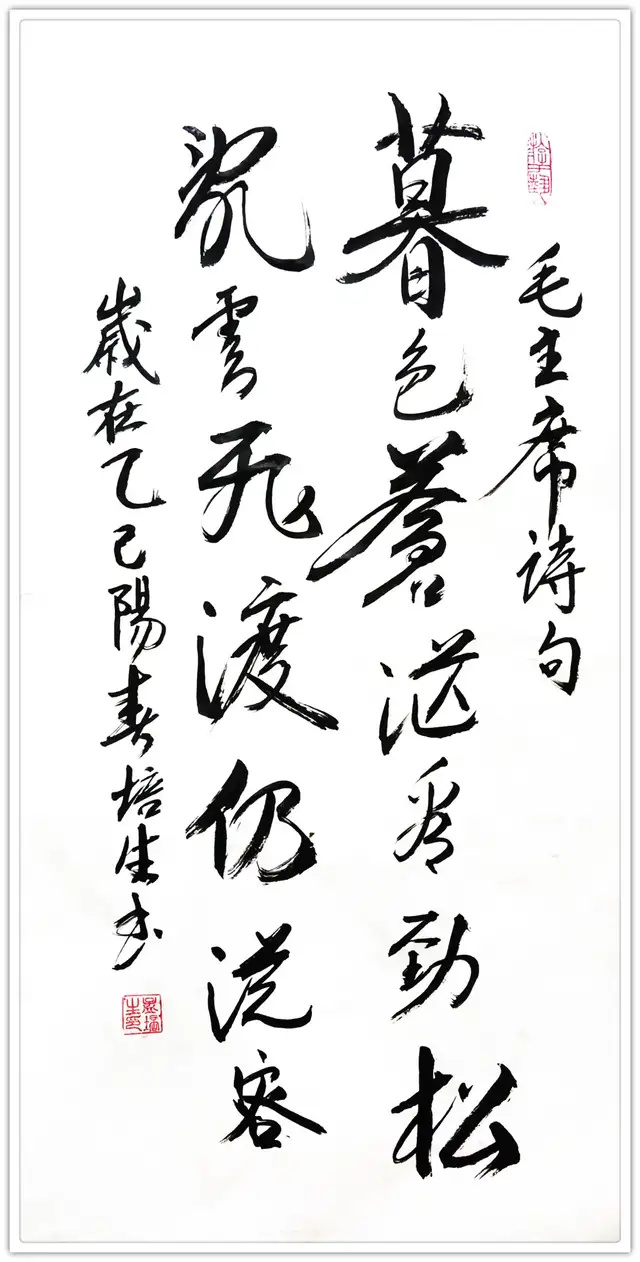 毛主席诗句
暮色蒼茫看劲松
亂雲飛渡仍從容
歲在乙巳陽春培生书